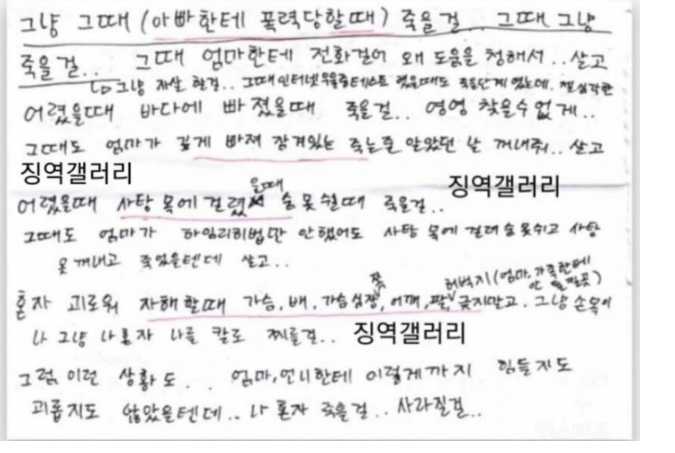 그냥 그때 (아빠한테 폭력당할때) 죽을걸... 그때 그냥
죽을걸... 그때 엄마한테 전화걸어 왜 도움을 청해서.. 살고
그냥 자살 할걸.. 그때 인터넷 우울증테스트 했을때도 제일 심각한
어렸을때 바다에 빠졌을때 죽을걸.. 영영 찾을수 없게..
그때도 엄마가 깊게 빠져 잠겨있는 죽는줄 알았던 날 꺼내줘.. 살고
징역갤러리
징역갤러리
어렸을때 사탕 목에 걸렸을때 숨 못쉴때 죽을걸..
그때도 엄마가 하임리히법만 안했어도 사탕 목에 걸려 숨못쉬고 사탕
못 꺼내고 죽었을텐데 살고..
혼자 괴로워 자해할때 가슴, 배, 가슴심장쪽, 어깨, 팔, 허벅지(엄마, 가족한테 안 들킬곳) 긋지말고. 그냥 손목이
나 그냥 나혼자 나를 칼로 찌를걸..
징역갤러리
그럼 이런 상황도.. 엄마, 언니한테 이렇게까지 힘들지도
괴롭지도 않았을텐데.. 나 혼자 죽을걸.. 사라질걸..